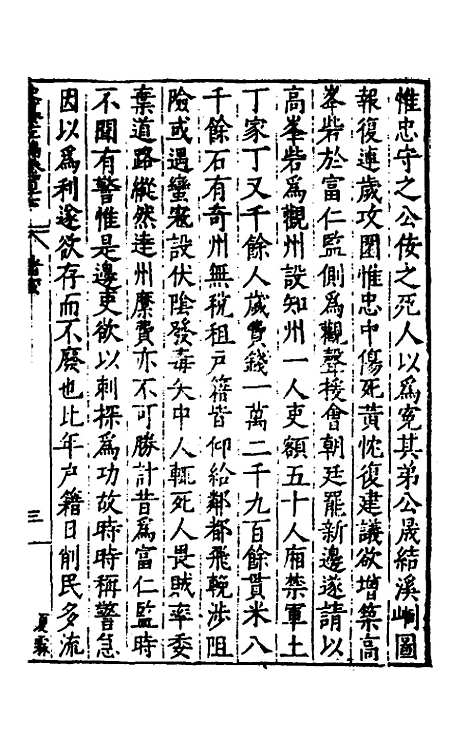 惟忠守之公佞之死人以爲寃其弟公晟結溪峒圖
報復連歲攻圍惟忠中傷死黃忱復建議欲增築高
峯砦於富仁監側爲觀聲援會朝廷罷新邊遂請以
高峯砦爲觀州設知州一人吏額五十人廂禁軍土
丁家丁又千餘人歲費錢一萬二千九百餘貫米八
千餘石有奇州無稅租戸籍皆仰給鄰都飛輓涉阻
險或遇蠻寇設伏陰發毒矢中人輒死人畏賊率委
棄道路縱然達州縻費亦不可勝計昔爲富仁監時
不聞有警惟是邊吏欲以刺探爲功故時時稱警急
因以爲利遂欲存而不廢也比年戸籍日削民多流
三
夏霖